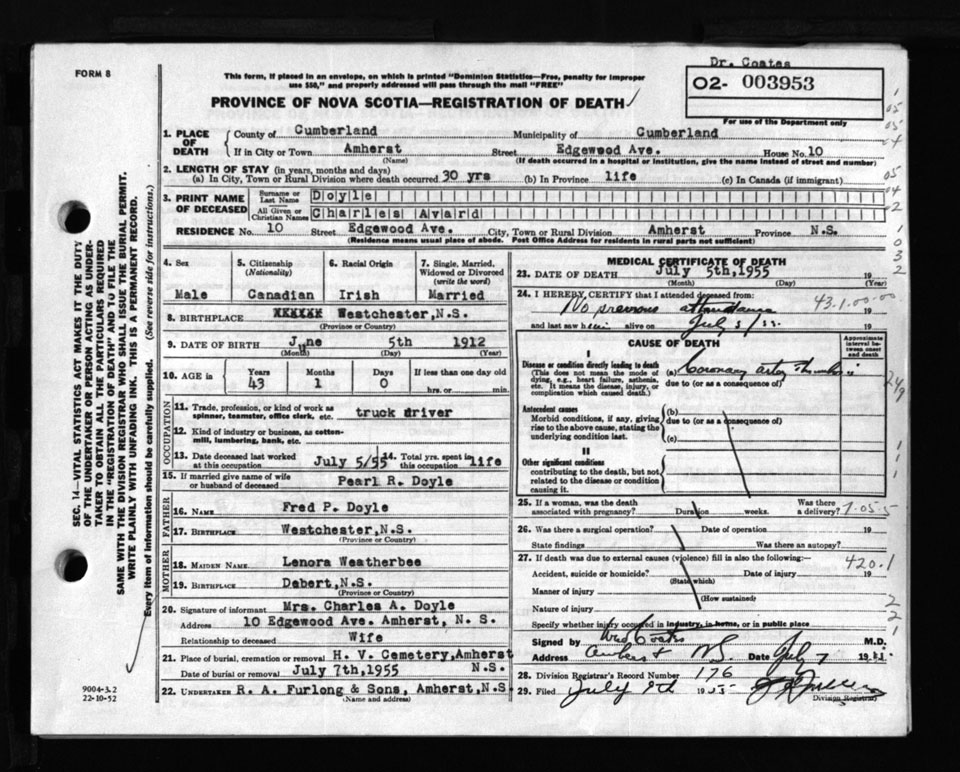 Dr. Coates
FORM 8
This form, if placed in an envelope, on which is printed "Dominion Statistics—Free, penalty for improper
use $50," and properly addressed will pass through the mail "FREE"
02- 003953
For use of the Department only
PROVINCE OF NOVA SCOTIA—REGISTRATION OF DEATH
1. PLACE OF DEATH
County of Cumberland Municipality of Cumberland
If in City or Town Amherst Street Edgewood Ave. House No. 10
(Name) (If death occurred in a hospital or institution, give the name instead of street and number)
2. LENGTH OF STAY (in years, months and days)
(a) In City, Town or Rural Division where death occurred 30 yrs (b) In Province life (c) In Canada (if immigrant)
3. PRINT NAME OF DECEASED
Surname or Last Name Doyle
All Given or Christian Names Charles Avard
RESIDENCE No. 10 Street Edgewood Ave. City, Town or Rural Division Amherst Province N.S.
(Residence means usual place of abode. Post Office Address for residents in rural parts not sufficient)
4. Sex Male
5. Citizenship (Nationality) Canadian
6. Racial Origin Irish
7. Single, Married, Widowed or Divorced (write the word) Married
8. BIRTHPLACE XXXXXX Westchester, N.S.
(Province or Country)
9. DATE OF BIRTH June 5th 1912
(Month) (Day) (Year)
10. AGE in Years Months Days If less than one day old
43 1 0 hrs. or min.
OCCUPATION
11. Trade, profession, or kind of work as spinner, teamster, office clerk, etc. truck driver
12. Kind of industry or business, as cotton-mill, lumbering, bank, etc.
13. Date deceased last worked at this occupation July 5/55
14. Total yrs. spent in this occupation life
15. If married give name of wife or husband of deceased Pearl R. Doyle
FATHER
16. NAME Fred P. Doyle
17. BIRTHPLACE Westchester, N.S.
(Province or Country)
MOTHER
18. MAIDEN NAME Lenora Weatherbee
19. BIRTHPLACE Debert, N.S.
(Province or Country)
20. Signature of informant Mrs. Charles A. Doyle
Address 10 Edgewood Ave. Amherst, N. S.
Relationship to deceased Wife
21. Place of burial, cremation or removal H. V. Cemetery, Amherst
Date of burial or removal July 7th, 1955 N.S.
22. UNDERTAKER R. A. Furlong & Sons, Amherst, N.S.
(Name and address)
MEDICAL CERTIFICATE OF DEATH
23. DATE OF DEATH July 5th, 1955 19
(Month) (Day) (Year)
24. I HEREBY CERTIFY that I attended deceased from:
No previous attendance
and last saw h im alive on July 5/55 19
CAUSE OF DEATH
Approximate interval between onset and death
I
Disease or condition directly leading to death
(This does not mean the mode of dying, e.g., heart failure, asthenia, etc. It means the disease, injury, or complication which caused death.)
(a) Coronary artery Thrombosis
due to (or as a consequence of)
Antecedent causes
Morbid conditions, if any, giving rise to the above cause, stating the underlying condition last.
(b)
due to (or as a consequence of)
(c)
II
Other significant conditions
contributing to the death, but not related to the disease or condition causing it.
25. If a woman, was the death associated with pregnancy? Duration weeks. Was there a delivery?
26. Was there a surgical operation? Date of operation 19
State findings Was there an autopsy?
27. If death was due to external causes (violence) fill in also the following:—
Accident, suicide or homicide? Date of injury 19
(State which)
Manner of injury
(How sustained)
Nature of injury
Specify whether injury occurred in industry, in home, or in public place
Signed by Coates M.D.
Address Amherst NS. Date July 7 19
28. Division Registrar's Record Number 176
29. Filed July 9th 1955
Division Registrar
43-1-00-00
420.1
SEC. 14—VITAL STATISTICS ACT MAKES IT THE DUTY
OF THE UNDERTAKER OR PERSON ACTING AS UNDER-
TAKER TO OBTAIN ALL THE PARTICULARS REQUIRED
IN THE "REGISTRATION OF DEATH" AND TO FILE THE
SAME WITH THE DIVISION REGISTRAR WHO SHALL ISSUE THE BURIAL PERMIT.
WRITE PLAINLY WITH UNFADING INK. THIS IS A PERMANENT RECORD.
Every item of information should be carefully supplied. (See reverse side for instructions.)
9004-3.2
22-10-52